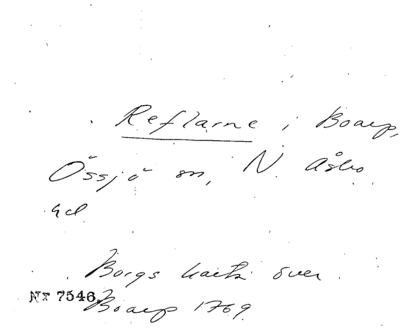 Reflarne i Boarp,
Össjö sn, N. Åsbo
hd
Borgs karta över
Nr 7546. Boarp 1769.